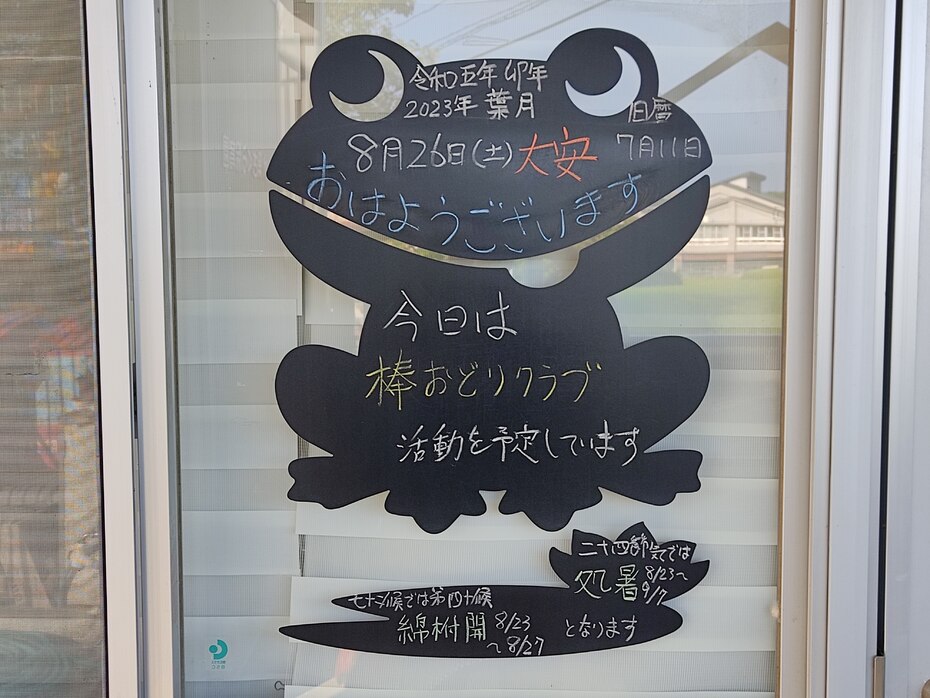 令和五年 卯年
2023年 葉月
旧暦
8月26日(土)大安
7月11日
おはようございます
今日は
棒おどりクラブ
活動を予定しています
二十四節気では
処暑 8/23〜
9/7
七十二候では第四十候
綿柎開 8/23
〜8/27
となります